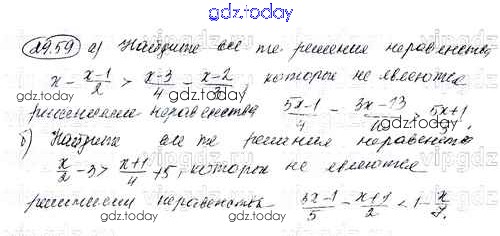 gdz.today
29.59 а) Найдите все те решения неравенства
x - \frac{x-1}{2} > \frac{x-3}{4} - \frac{x-2}{3} которые не являются
решениями неравенства \frac{5x-1}{4} - \frac{3x-13}{10} > \frac{5x+1}{3}.
б) Найдите все те решения неравенства
\frac{x}{2} - 3 > \frac{x+1}{4} + 5, которые не являются
решениями неравенства \frac{3x-1}{5} - \frac{x+1}{2} < 1 - \frac{x}{7}.
gdz.today